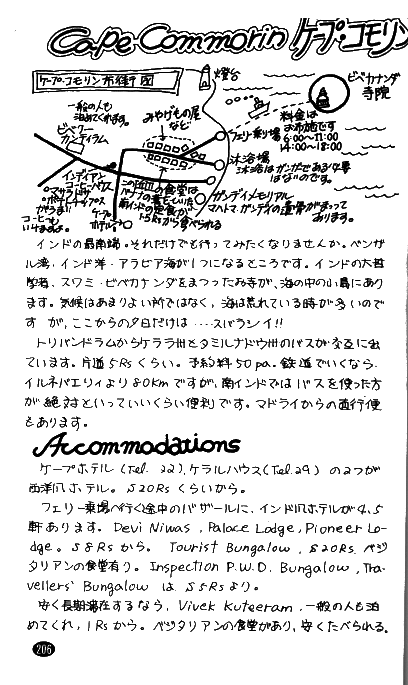 Cape Commorin ケープ・コモリン
ケープ・コモリン市街図
燈台
ビベカナンダ
寺院
一般の人も
泊めてくれます。
みやげもの屋
など
フェリー乗り場
料金は
お布施です
6:00〜11:00
14:00〜18:00
沐浴場
沐浴はガンガである必要
はないのです。
インディアン
コーヒーハウス
ガンディメモリアル
マハトマ・ガンディの遺骨がまつって
あります。
ケープ
ホテル
インドの最南端。それだけでも行ってみたくなりませんか。ベンガ
ル湾、インド洋、アラビア海が1つになるところです。インドの大哲
学者、スワミ・ビベカナンダをまつったお寺が、海の中の小島にあり
ます。気候はあまりよい所ではなく、海は荒れている時が多いので
すが、ここからの夕日だけは……スバラシイ!!
トリバンドラムからケララ州とタミルナドゥ州のバスが交互に出
ています。片道5Rsくらい。予約料50pa. 鉄道でいくなら、
イルネバエリィより80kmですが、南インドではバスを使った方
が絶対といっていいくらい便利です。マドライからの直行便
もあります。
Accommodations
ケープホテル (Tel. 22)、ケラルハウス(Tel.29) の2つが
西洋風ホテル。S20Rsくらいから。
フェリー乗場へ行く途中のバザールに、インド風ホテルが4,5
軒あります。Devi Niwas, Palace Lodge, Pioneer Lo-
dge。S8Rsから。Tourist Bungalow, S20Rs. ベジ
タリアンの食堂有り。Inspection P.W.D. Bungalow, Tra-
vellers' Bungalow は S5Rsより。
安く長期滞在するなら、Vivek Kuteeram. 一般の人も泊
めてくれ、1Rsから。ベジタリアンの食堂があり、安くたべられる。
206